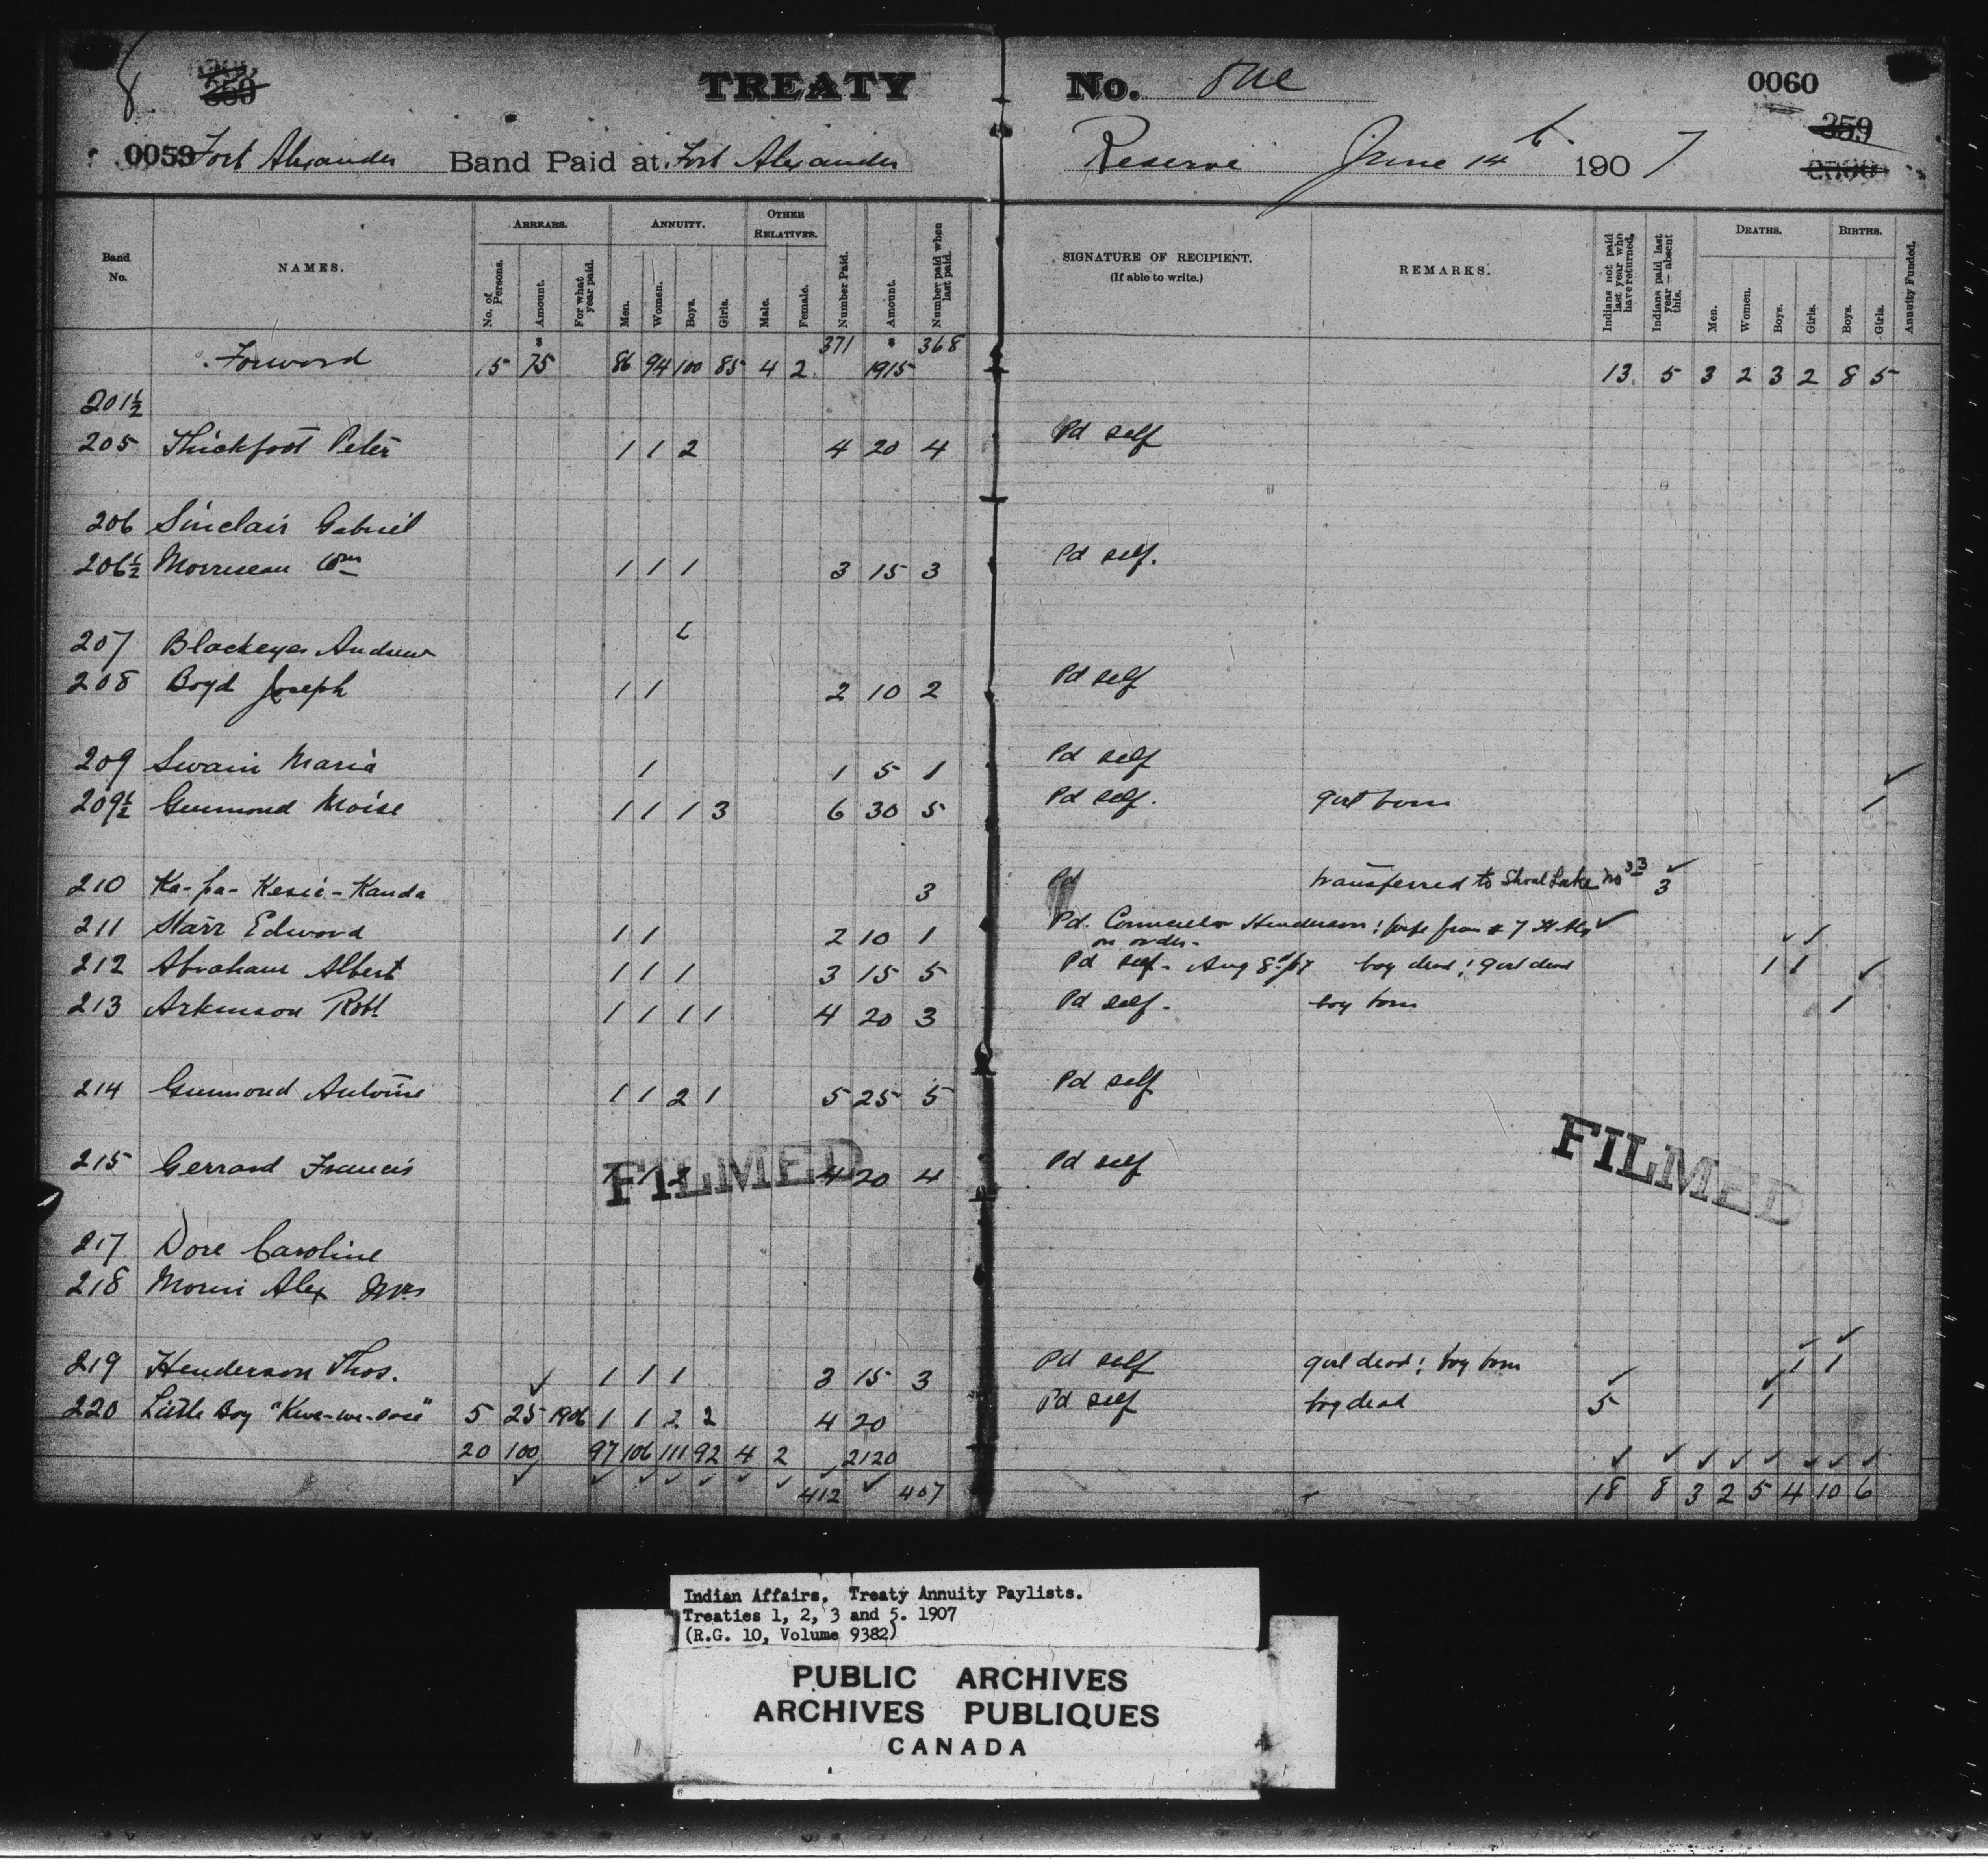 8 359 TREATY No. One 0060
359
0059 Fort Alexander Band Paid at Fort Alexander Reserve June 14th 1907
Band No. NAMES. ARREARS. ANNUITY. OTHER RELATIVES. SIGNATURE OF RECIPIENT. (If able to write.) REMARKS. DEATHS. BIRTHS.
No. of Persons. Amount. For what year paid. Men. Women. Boys. Girls. Male. Female. Number Paid. Amount. Number paid when last paid. Indians not paid last year who have returned. Indians paid last year — absent this. Men. Women. Boys. Girls. Boys. Girls. Annuity Funded.
Forward 15 $ 75 86 94 100 85 4 2 371 $ 1915 368 13 5 3 2 3 2 8 5
201½
205 Thickfoot Peter 1 1 2 4 20 4 Pd self
206 Sinclair Gabriel
206½ Morriseau Wm 1 1 1 3 15 3 Pd self.
207 Blackeyes Andrew
208 Boyd Joseph 1 1 2 10 2 Pd self
209 Swain Maria 1 1 5 1 Pd self
209½ Guimond Moise 1 1 1 3 6 30 5 Pd self. girl born ✓ 1
210 Ka-pa-Kesic-Kanda 3 Pd transferred to Shoal Lake No 3 ✓ 3
211 Starr Edward 1 1 2 10 1 Pd. Councillor Henderson on order. wife from # 7 ✓
212 Abraham Albert 1 1 1 3 15 5 Pd self - Aug 8/07 boy dead; girl dead ✓ ✓ 1 1
213 Arkinson Robt 1 1 1 1 4 20 3 Pd self. boy born ✓ 1
214 Guimond Antoine 1 1 2 1 5 25 5 Pd self
215 Gerrard Francis 1 1 2 4 20 4 Pd self
FILMED FILMED
217 Dore Caroline
218 Morin Alex Mrs
219 Henderson Thos. 1 1 1 3 15 3 Pd self girl dead; boy born ✓ ✓ 1 1
220 Little Boy "Kwe-we-sace" 5 25 ✓ 1906 1 1 2 2 4 20 Pd self boy dead ✓ 5 ✓ 1
20 100 97 106 111 92 4 2 2120
✓ ✓ ✓ ✓ ✓ ✓ ✓ ✓ 412 ✓ 407 18 8 3 2 5 4 10 6
Indian Affairs. Treaty Annuity Paylists.
Treaties 1, 2, 3 and 5. 1907
(R.G. 10, Volume 9382)
PUBLIC ARCHIVES
ARCHIVES PUBLIQUES
CANADA